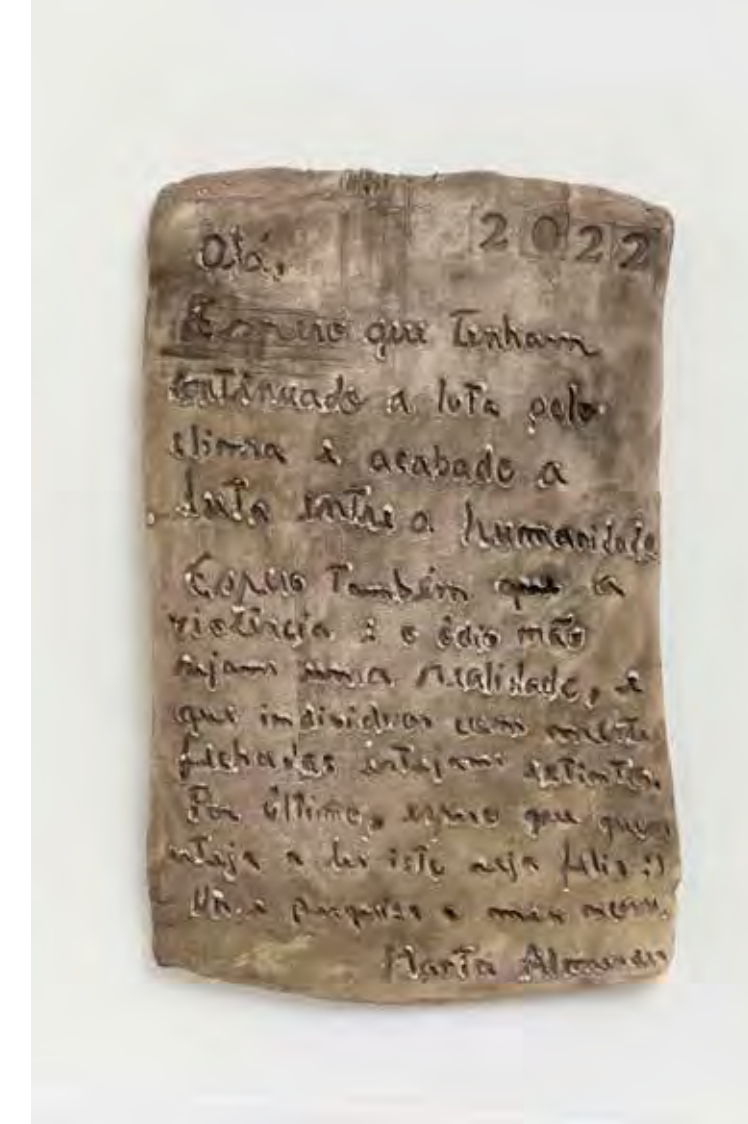 2022
Olá,
Espero que tenham
continuado a luta pelo
clima e acabado a
luta entre a humanidade
Espero também que a
violência : e o ódio não
sejam uma realidade, e
que individuos com mente
fechadas estejam extintos.
Por último, espero que quem
esteja a ler isto seja feliz :)
Marta